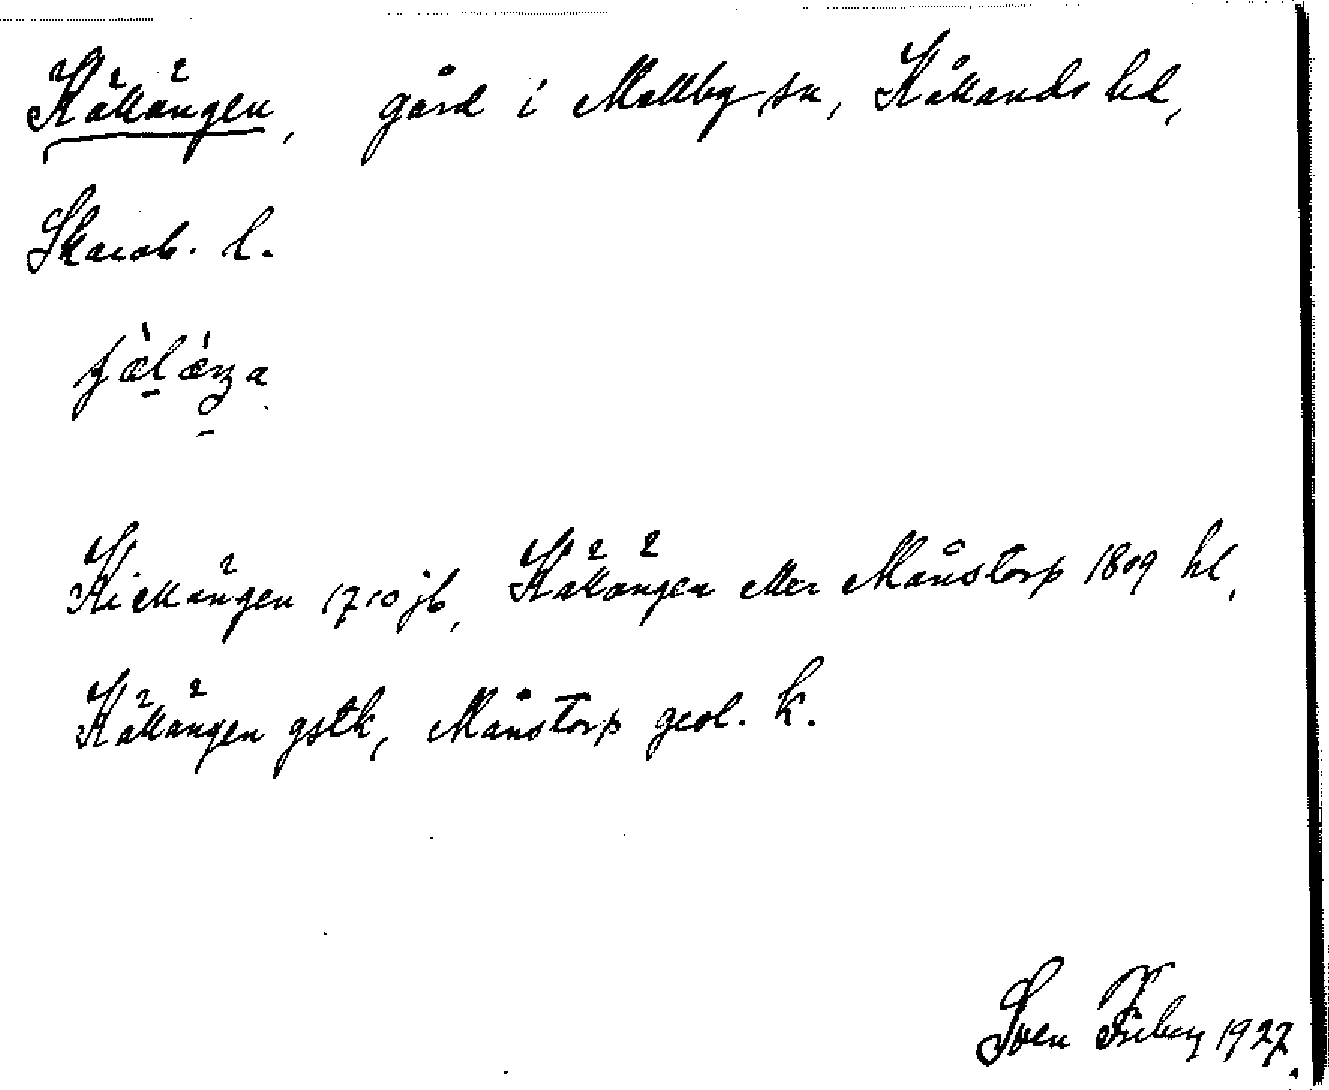 Källängen, gård i Mellby sn, Kållands hd,
Skarab. l.
Kiellängen 1710 jb, Källängen eller Månstorp 1809 hl,
Källängen gstk, Månstorp geol. k.
Sven Friberg 1927.